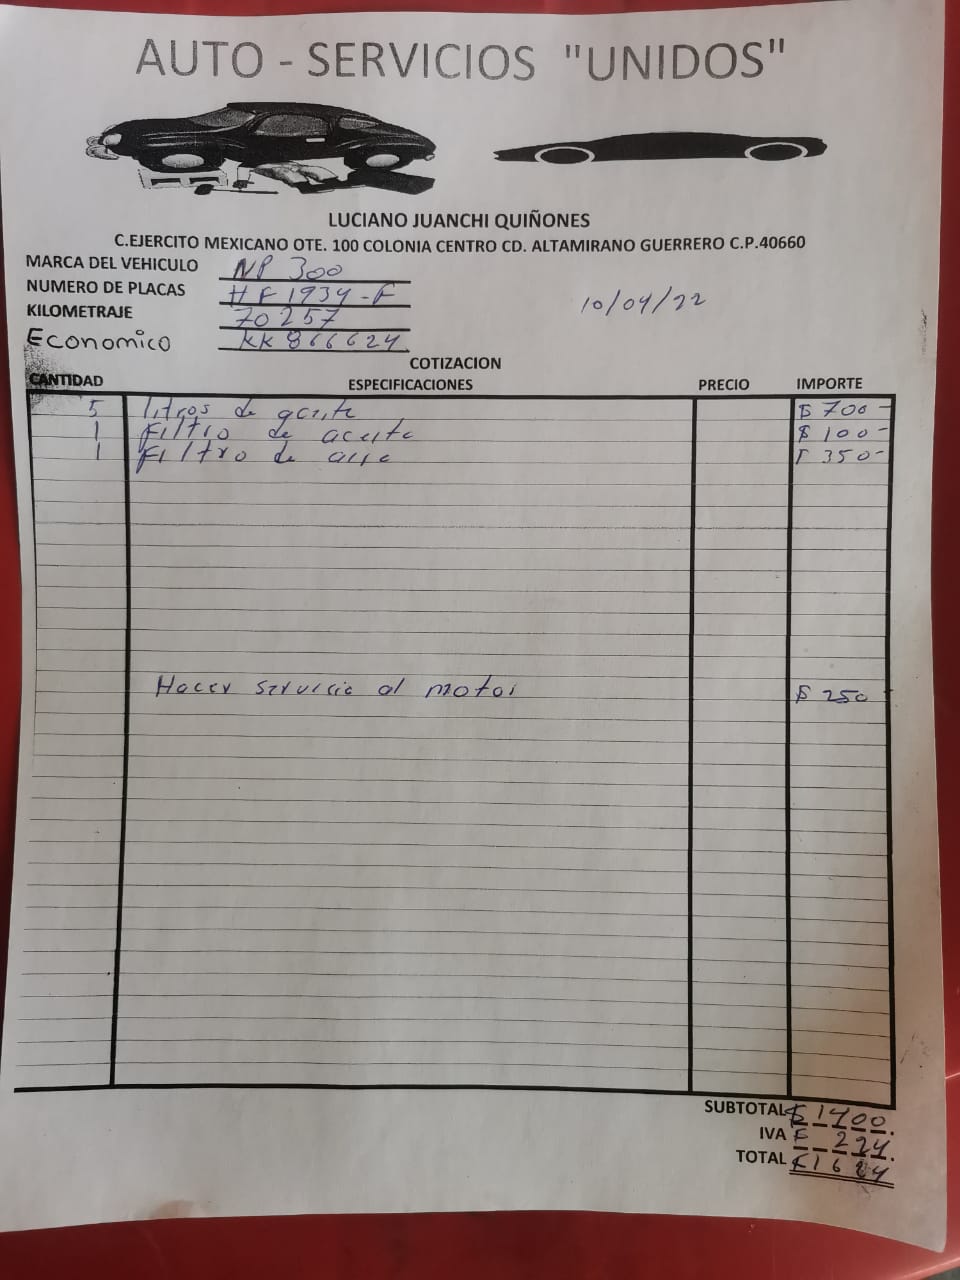 AUTO - SERVICIOS "UNIDOS"
LUCIANO JUANCHI QUIÑONES
C.EJERCITO MEXICANO OTE. 100 COLONIA CENTRO CD. ALTAMIRANO GUERRERO C.P.40660
MARCA DEL VEHICULO NP 300
NUMERO DE PLACAS HF1934-F
10/04/22
KILOMETRAJE 70257
Economico KK866624
COTIZACION
CANTIDAD ESPECIFICACIONES PRECIO IMPORTE
5 litros de aceite $ 700-
1 Filtro de aceite $ 100-
1 Filtro de aire $ 350-
Hacer servicio al motor $ 250
SUBTOTAL $ 1400.
IVA $ 224.
TOTAL $1624